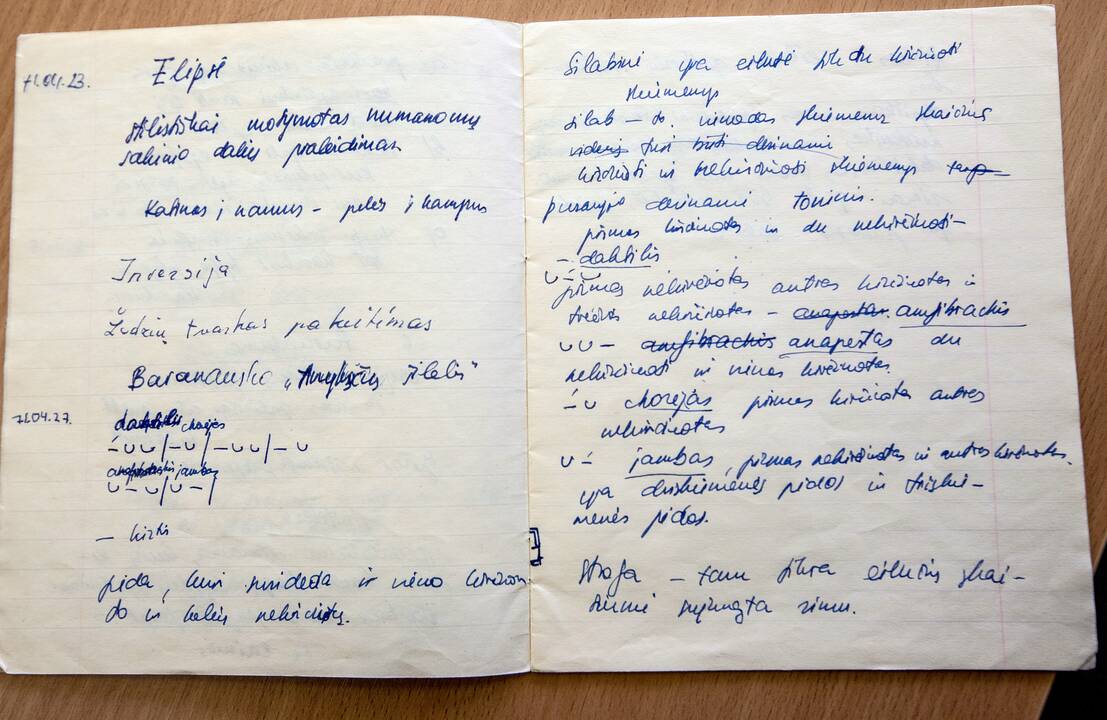 71.04.23.
Elipsė
stilistiškai motyvuotas numanomų
sakinio dalių praleidimas
Katinas į namus – pelės į kampus
Inversija
Žodžių tvarkos pakeitimas
Baranausko „Anykščių šilelis"
71.04.27.
daktilis chorėjas
–́ ∪ ∪ / – ∪ / – ∪ ∪ / – ∪
jambas
∪ – ∪ / ∪ – /
– kirtis
pėda, kuri susideda iš vieno kirčiuo-
to ir kelių nekirčiuotų.
Silabinė yra eilutė tik du kirčiuoti
skiemenys
silab – to. vienodas skiemenų skaičius
turi būti derinami
kirčiuoti ir nekirčiuoti skiemenys
pusaujo derinami toninis.
pirmas kirčiuotas ir du nekirčiuoti –
– daktilis
∪ –́ ∪
pirmas nekirčiuotas antras kirčiuotas ir
trečias nekirčiuotas – anapestas amfibrachis
∪ ∪ – amfibrachis anapestas du
nekirčiuoti ir vienas kirčiuotas.
–́ ∪ chorėjas pirmas kirčiuotas antras
nekirčiuotas
∪ –́ jambas, pirmas nekirčiuotas ir antras kirčiuotas.
yra dviskiemenės pėdos ir triskie-
menės pėdos.
Strofa – tam tikra eilučių skai-
čiumi sujungta rimu.